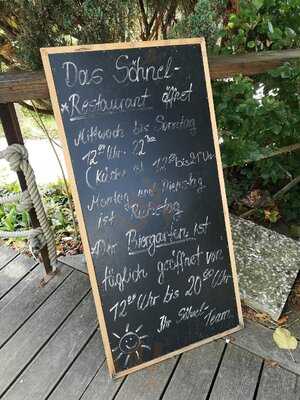 Das Söhnel-
*Restaurant öffnet
Mittwoch bis Sonntag
12⁰⁰ Uhr - 22³⁰
(Küche ist 12⁰⁰ bis 21 Uhr)
Montag und Dienstag
ist Ruhetag
- Der Biergarten ist
täglich geöffnet von
12⁰⁰ Uhr bis 20⁰⁰ Uhr
Ihr Söhnel-
Team